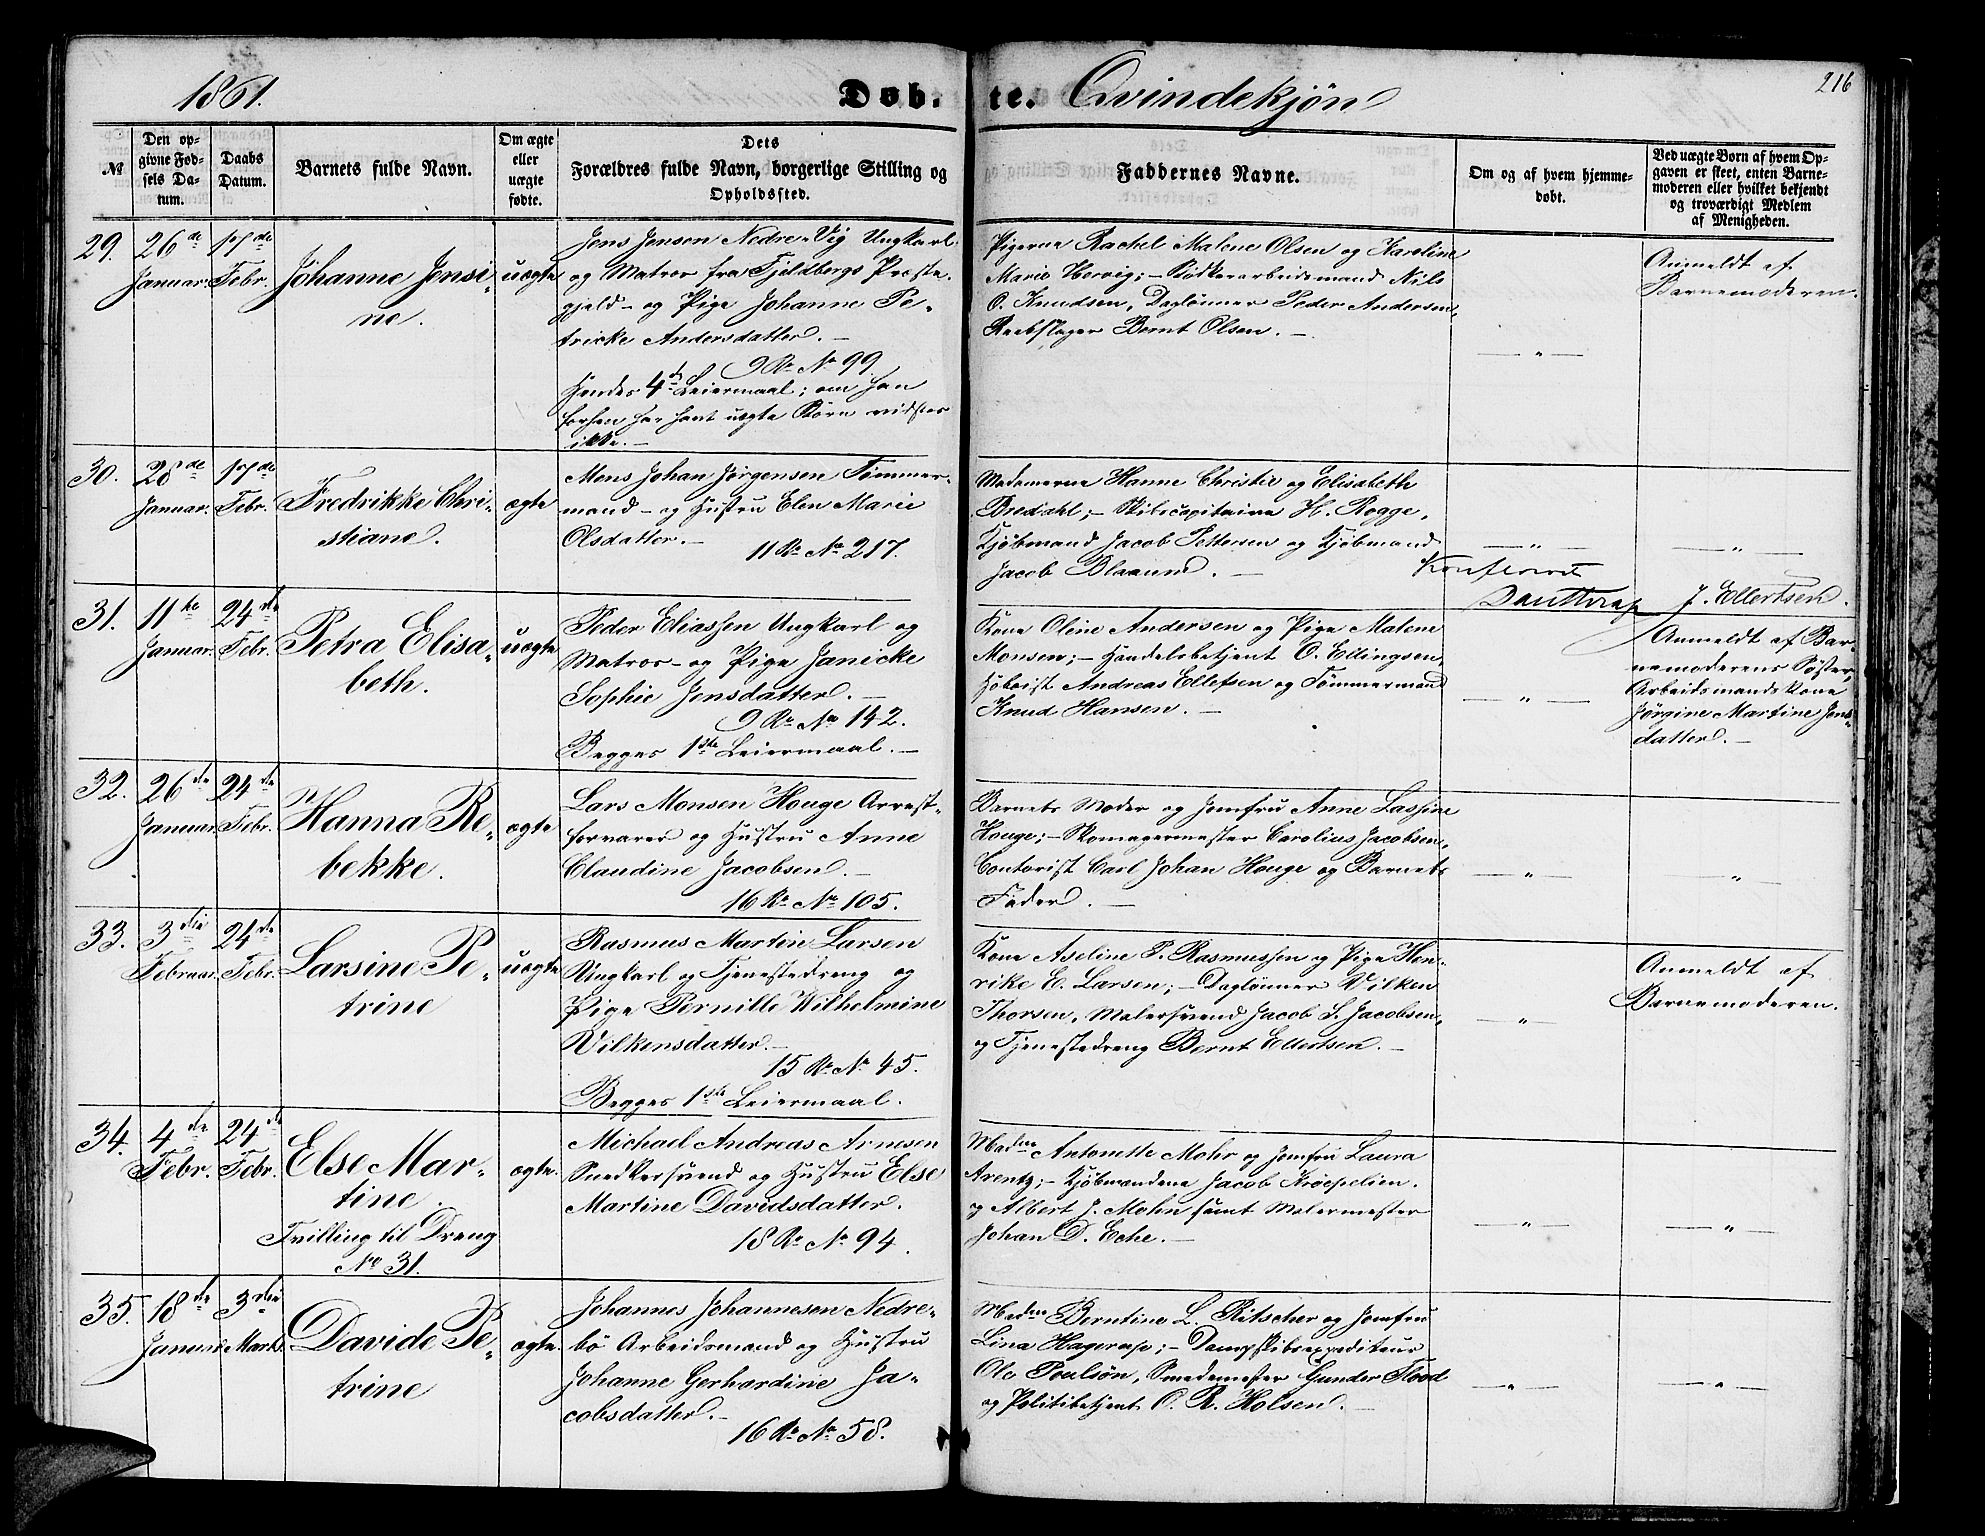 1861.
Döbte. Qvindekjøn
216
№
Den opgivne Fødsels Datum.
Daabs Datum.
Barnets fulde Navn.
Om ægte eller uægte fødte.
Dets Forældres fulde Navn, borgerlige Stilling og Opholdssted.
Faddernes Navne.
Om og af hvem hjemmedøbt.
Ved uægte Børn af hvem Opgaven er skeet, enten Barnemoderen eller hvilket bekjendt og troværdigt Medlem af Menigheden.
29. 26de Januar. 17de Febr.
Johanne Jensine.
uægte
Jens Jensen Nedre-Vig Ungkarl
og Matros fra Fjeldbergs Præste
gjeld - og Pige Johanne Pe-
tricke Andersdatter. —
9 R. No 99.
Hendes 4de Leiermaal; om han
forhen har havt uægte Børn vidstes
ikke. —
Pigerne Rachel Malene Olsen og Karoline
Marie Hervig; - Bødkerarbeidsmand Nils
O. Knudsen, Daglønner Peder Andersen,
Reebslager Bernt Olsen. —
— " —
Anmeldt af
Barnemoderen.
30. 28de Januar. 17de Febr.
Fredrikke Christiane.
ægte
Mons Johan Jørgensen Tømmer-
mand - og Hustru Elen Marie
Olsdatter. —
11 R. No 217.
Madamerne Hanne Christie og Elisabeth
Bredahl; - Skibscapitaine H. Rogge,
Kjøbmand Jacob Pettersen og Kjøbmand
Jacob Blaauw. —
— " —
— " —
Konfereret
J. Ellertsen.
31. 11te Januar. 24de Febr.
Petra Elisabeth.
uægte
Peder Eliassen Ungkarl og
Matros - og Pige Janicke
Sophie Jensdatter. —
9 R. No 142.
Begges 1ste Leiermaal. —
Kone Oline Andersen og Pige Malene
Monsen; - Handelsbetjent O. Ellingsen,
Hoboist Andreas Ellefsen og Tømmermand
Knud Hansen. —
— " —
Anmeldt af Bar-
nemoderens Søster,
Arbeidsmandskone
Jørgine Martine Jens-
datter. —
32. 26de Januar. 24de Febr.
Hanna Rebekke.
ægte
Lars Monsen Houge Arrest-
forvarer og Hustru Anne
Claudine Jacobsen. —
16 R. No 105.
Barnets Moder og Jomfru Anne Lassine
Houge; - Skomagermester Carolius Jacobsen,
Contorist Carl Johan Houge og Barnets
Fader. —
— " —
— " —
33. 3die Februar. 24de Febr.
Larsine Petrine
uægte
Rasmus Martin Larsen
Ungkarl og Tjenestedreng og
Pige Pernille Wilhelmine
Vilkensdatter. —
15 R. No 45.
Begges 1ste Leiermaal.
Kone Aseline P. Rasmussen og Pige Hen-
rike E. Larsen; - Daglønner Vilken
Thorsen, Malersvend Jacob L. Jacobsen,
og Tjenestedreng Bernt Ellertsen. —
— " —
Anmeldt af
Barnemoderen.
34. 4de Febr. 24de Febr.
Else Martine.
Tvilling til Dreng
No 31.
ægte.
Michael Andreas Arnesen
Snedkersvend og Hustru Else
Martine Davidsdatter.
18 R. No 94.
Madme Antonette Mohr og Jomfru Laura
Arentz; - Kjøbmændene Jacob Krøepelien.
og Albert J. Mohn samt Malermester
Johan D. Eche. —
— " —
— " —
35. 18de Januar 3die Marts
Davide Petrine
ægte.
Johannes Johannesen Nedre-
bø Arbeidsmand og Hustru
Johanne Gerhardine Ja-
cobsdatter. —
16 R. No 58.
Madme Berntine L. Ritscher og Jomfru
Lina Hagerup; - Dampskibsexpediteur
Ole Poulsøn, Smedemester Gunder Flood
og Politibetjent O. R. Holsen. —
— " —
— " —